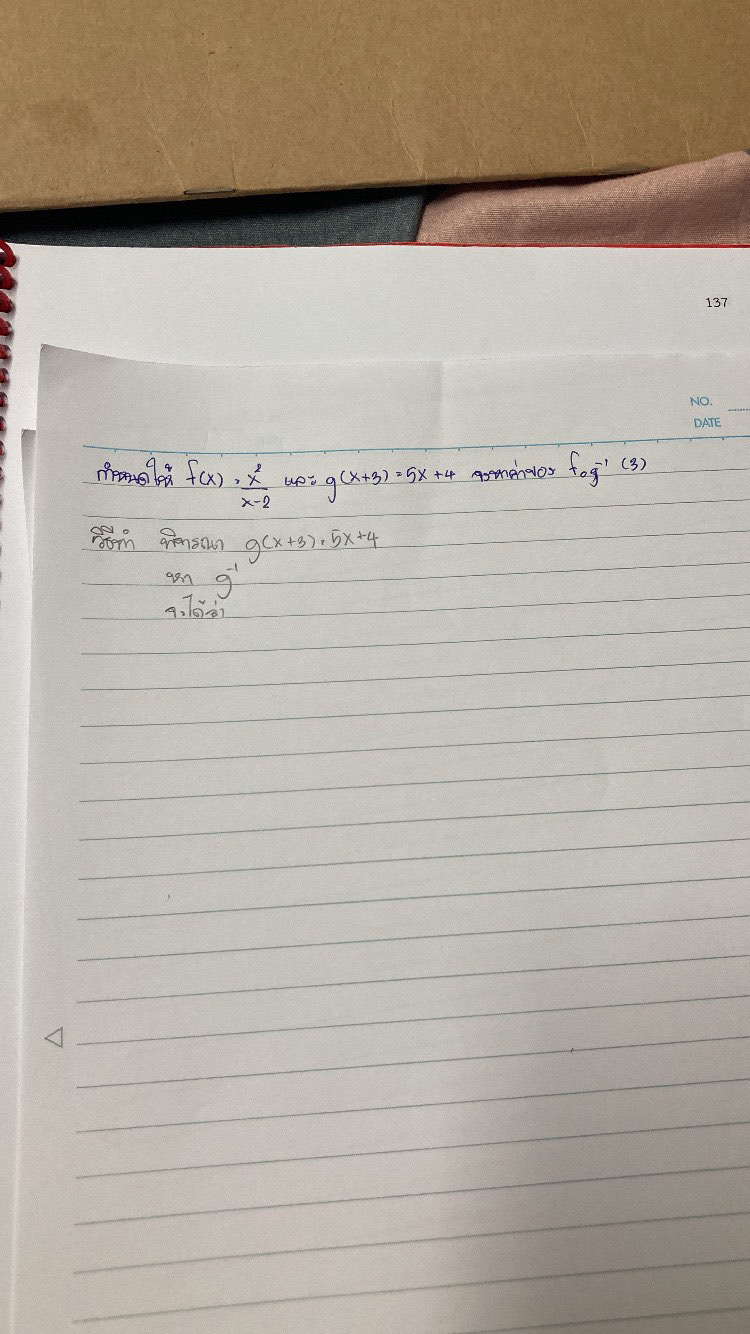 137
NO.
DATE
กำหนดให้ f(x) = x²/x-2 และ g(x+3) = 5x+4 จงหาค่าของ fog⁻¹ (3)
วิธีทำ พิจารณา g(x+3) = 5x+4
หา g⁻¹
จะได้ว่า